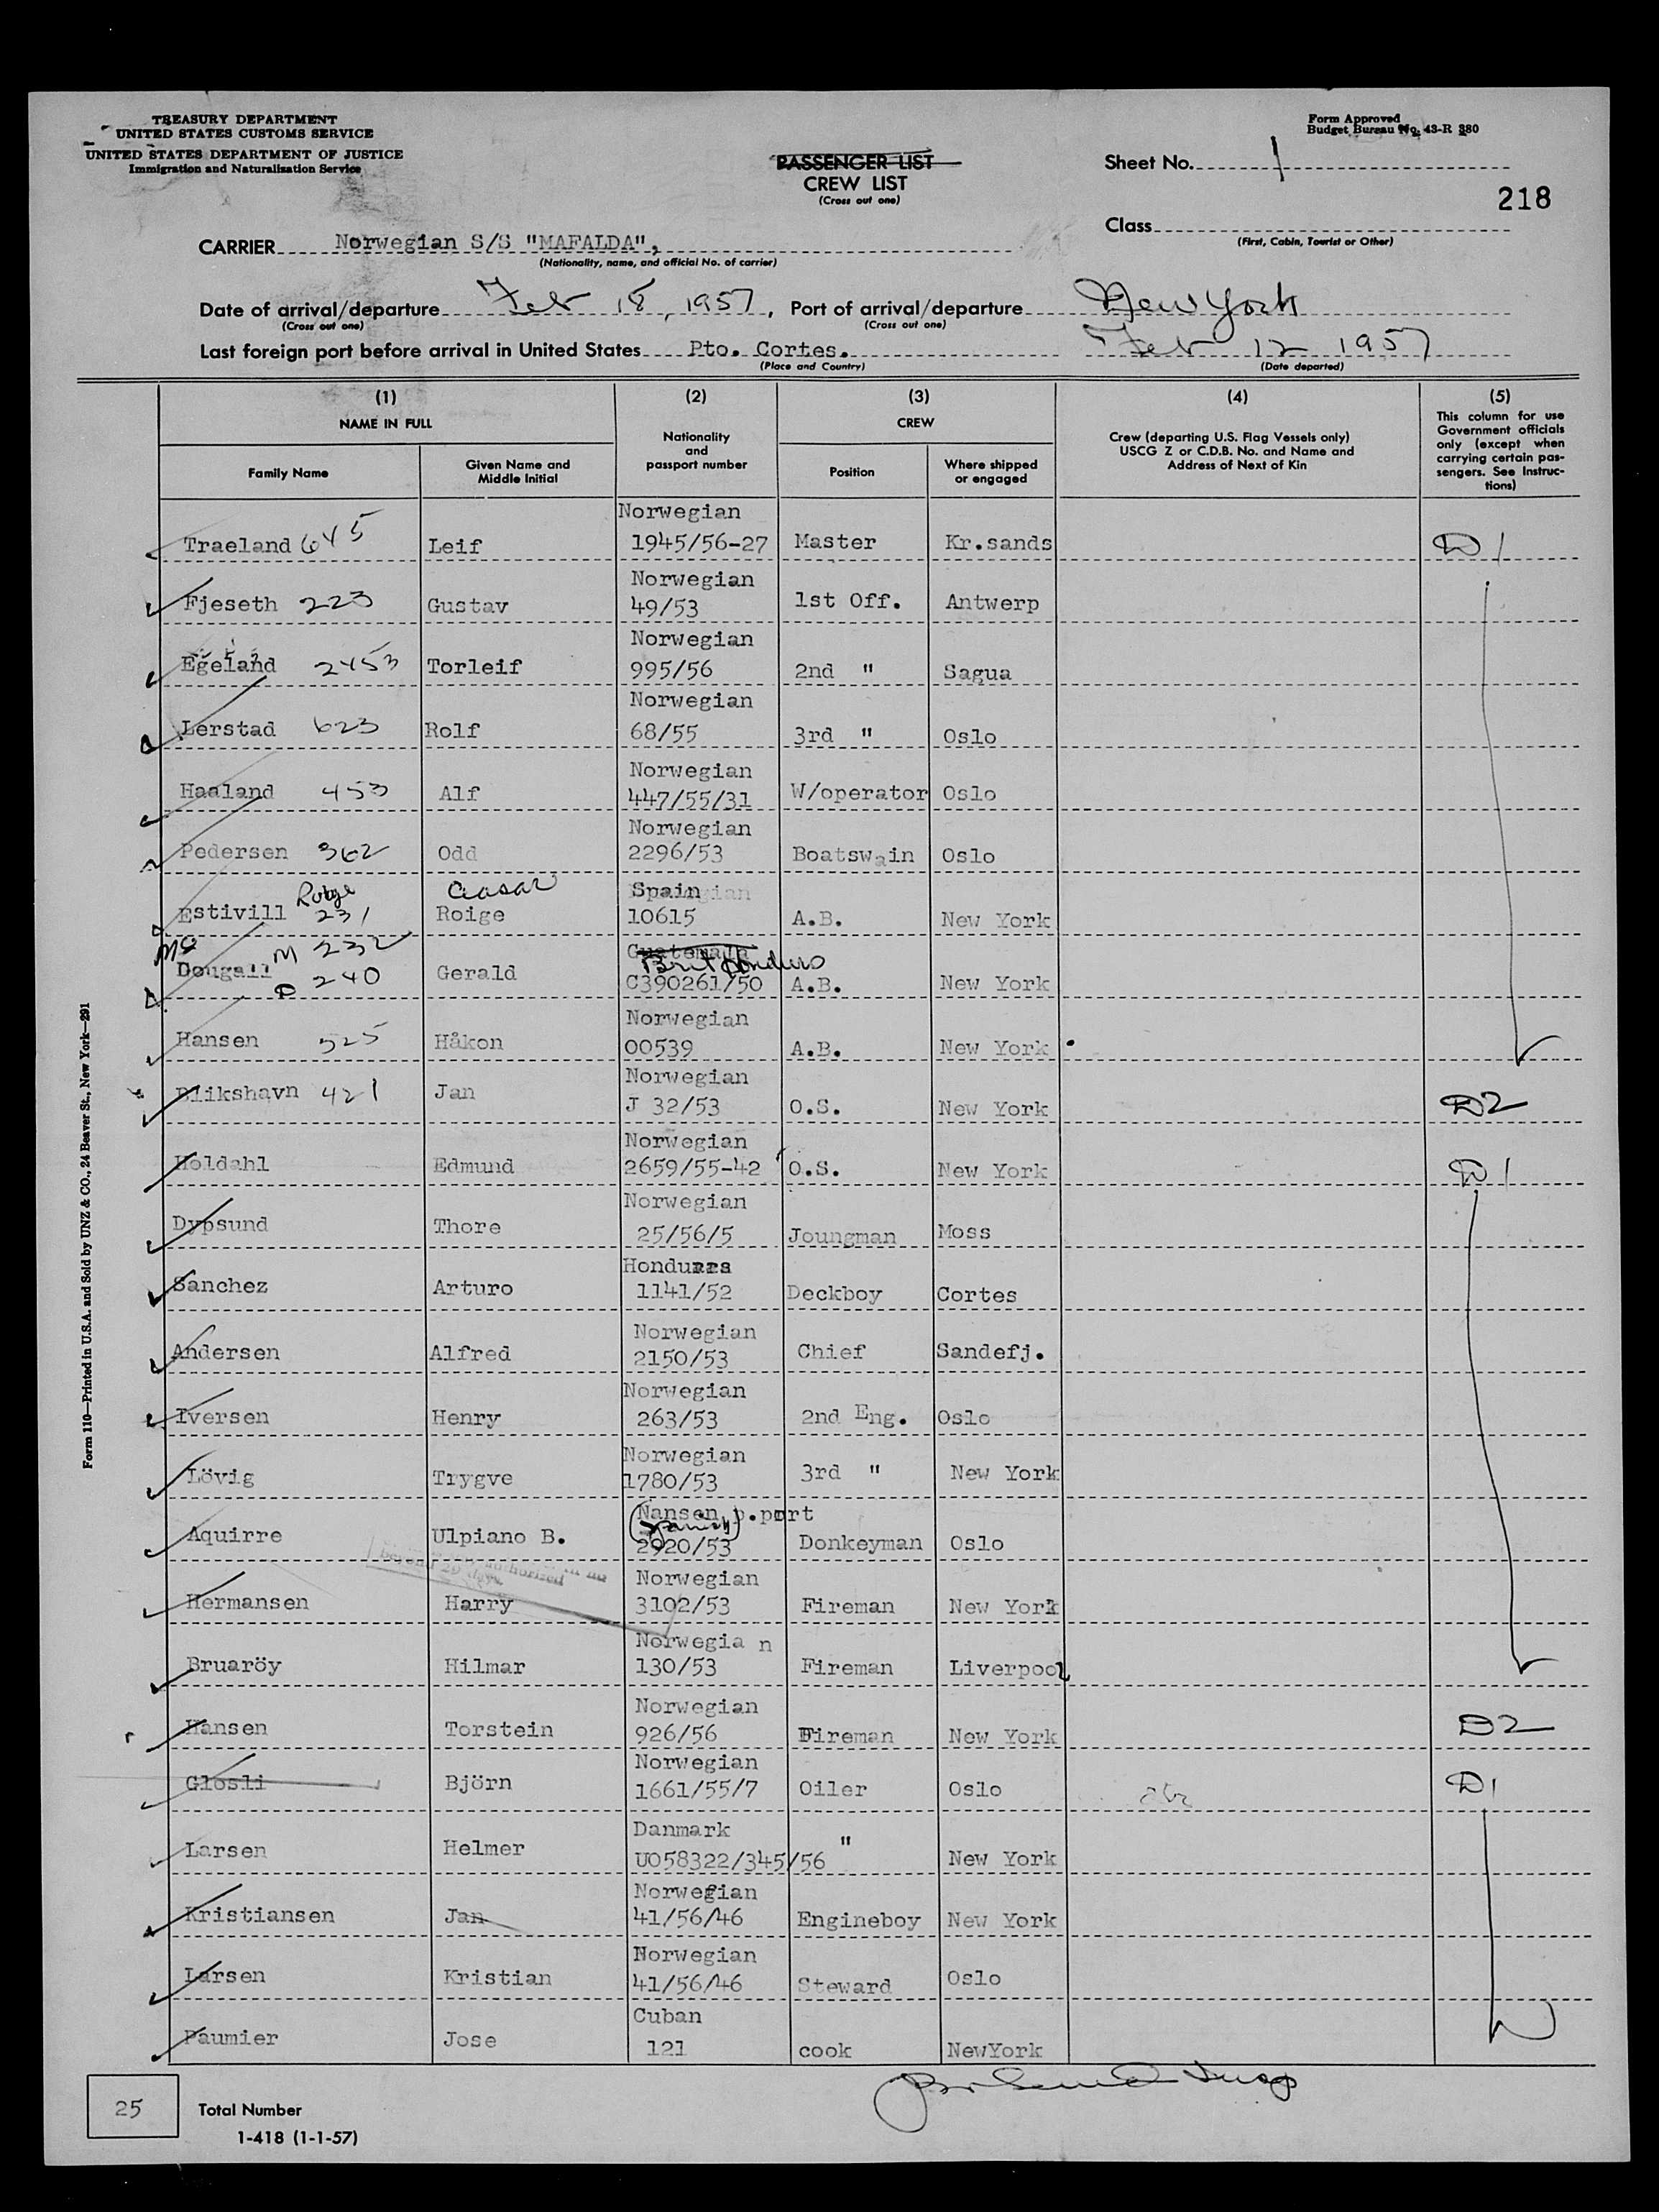 TREASURY DEPARTMENT
UNITED STATES CUSTOMS SERVICE
UNITED STATES DEPARTMENT OF JUSTICE
Immigration and Naturalization Service
PASSENGER LIST
CREW LIST
(Cross out one)
Form Approved
Budget Bureau No. 43-R 380
Sheet No. 1
218
Class
(First, Cabin, Tourist or Other)
CARRIER Norwegian S/S "MAFALDA",
(Nationality, name, and official No. of carrier)
Date of arrival/departure Feb 18, 1957, Port of arrival/departure New York
(Cross out one) (Cross out one)
Last foreign port before arrival in United States Pto. Cortes. Feb 12 1957
(Place and Country) (Date departed)
(1) (2) (3) (4) (5)
NAME IN FULL
Family Name
Given Name and Middle Initial
Nationality and passport number
CREW
Position
Where shipped or engaged
Crew (departing U.S. Flag Vessels only) USCG Z or C.D.B. No. and Name and Address of Next of Kin
This column for use Government officials only (except when carrying certain passengers. See Instructions)
Traeland 645 Leif Norwegian 1945/56-27 Master Kr.sands D 1
Fjeseth 223 Gustav Norwegian 49/53 1st Off. Antwerp
Egeland 2453 Torleif Norwegian 995/56 2nd " Sagua
Lerstad 623 Rolf Norwegian 68/55 3rd " Oslo
Haaland 453 Alf Norwegian 447/55/31 W/operator Oslo
Pedersen 362 Odd Norwegian 2296/53 Boatswain Oslo
Estivill Roige 231 Ceasar Roige Spain 10615 A.B. New York
Mc Dougall M 232 D 240 Gerald Guatemala Brit Honduro C390261/50 A.B. New York
Hansen 525 Håkon Norwegian 00539 A.B. New York
Blikshavn 421 Jan Norwegian J 32/53 O.S. New York D2
Holdahl Edmund Norwegian 2659/55-42 O.S. New York D 1
Dypsund Thore Norwegian 25/56/5 Joungman Moss
Sanchez Arturo Honduras 1141/52 Deckboy Cortes
Andersen Alfred Norwegian 2150/53 Chief Sandefj.
Iversen Henry Norwegian 263/53 2nd Eng. Oslo
Lövig Trygve Norwegian 1780/53 3rd " New York
Aquirre Ulpiano B. Nansen p.port (Spanish) 2920/53 Donkeyman Oslo
beyond 29 days authorized
Hermansen Harry Norwegian 3102/53 Fireman New York
Bruaröy Hilmar Norwegia n 130/53 Fireman Liverpool
Hansen Torstein Norwegian 926/56 Fireman New York D2
Glosli Björn Norwegian 1661/55/7 Oiler Oslo D1
Larsen Helmer Danmark U058322/345/56 " New York
Kristiansen Jan Norwegian 41/56/46 Engineboy New York
Larsen Kristian Norwegian 41/56/46 Steward Oslo
Paumier Jose Cuban 121 cook NewYork
25 Total Number
1-418 (1-1-57)
Form 110—Printed in U.S.A. and Sold by UNZ & CO., 24 Beaver St., New York—291